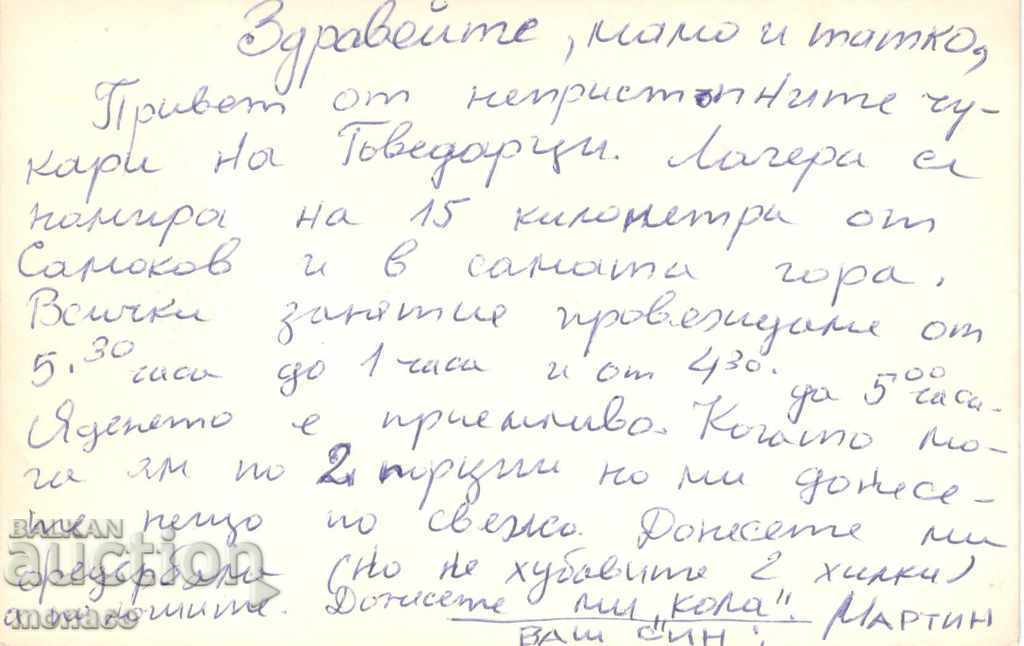 Здравейте, мамо и татко,
Привет от непристъпните чу-
кари на Говедарци. Лагера се
намира на 15 километри от
Самоков и в самата гора.
Всички занятие провеждаме от
5.30 часа до 1 часа и от 430.
до 500 часа.
Яденето е приемливо. Когато мо-
га ям по 2 порции но ми донесе-
те нещо по свежо. Донесете ми
(но не хубавите 2 хилки)
а лошите. Донесете ми "кола".
ваш син: Мартин
BALKAN
auction
monaco